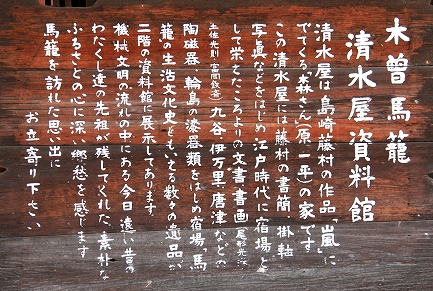 木曽馬籠
清水屋資料館
清水屋は島崎藤村の作品「嵐」に
でてくる森さん(原一平)の家です
この清水屋には藤村の書簡、掛軸
写真などをはじめ江戸時代に宿場と
して栄えたころよりの文書書画(尾形光淋
土佐光則・富岡鉄斎)九谷伊万里唐津などの
陶磁器、輪島の漆器類をはじめ宿場「馬
籠」の生活文化史ともいえる数々の遺品が
二階の資料館に展示してあります。
機械文明の流れの中にある今日遠い昔の
わたくし達の先祖が残してくれた、素朴な
ふるさとの心に深い郷愁を感じます
馬籠を訪れた思い出に
お立寄り下さい